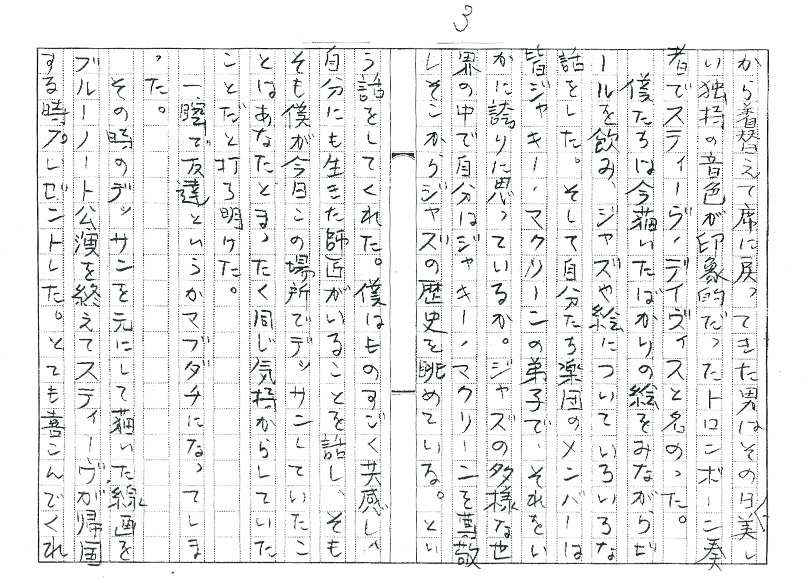 3
から着替えて席に戻ってきた男はその日、美し
い独特の音色が印象的だったトロンボーン奏
者でスティーヴ・デイヴィスと名のった。
僕たちは今描いたばかりの絵をみながらビ
ールを飲み、ジャズや絵についていろいろな
話をした。そして自分たち楽団のメンバーは
皆ジャキー・マクリーンの弟子で、それをい
かに誇りに思っているか。ジャズの多様な世
界の中で自分はジャキー・マクリーンを尊敬
しそこからジャズの歴史を眺めている。とい
う話をしてくれた。僕はものすごく共感し、
自分にも生きた師匠がいることを話し、そも
そも僕が今日この場所でデッサンしていたこ
とはあなたとまったく同じ気持からしていた
ことだと打ち明けた。
一瞬で友達というかマブダチになってしま
った。
その時のデッサンを元にして描いた線画を
ブルーノート公演を終えてスティーヴが帰国
する時プレゼントした。とても喜こんでくれ